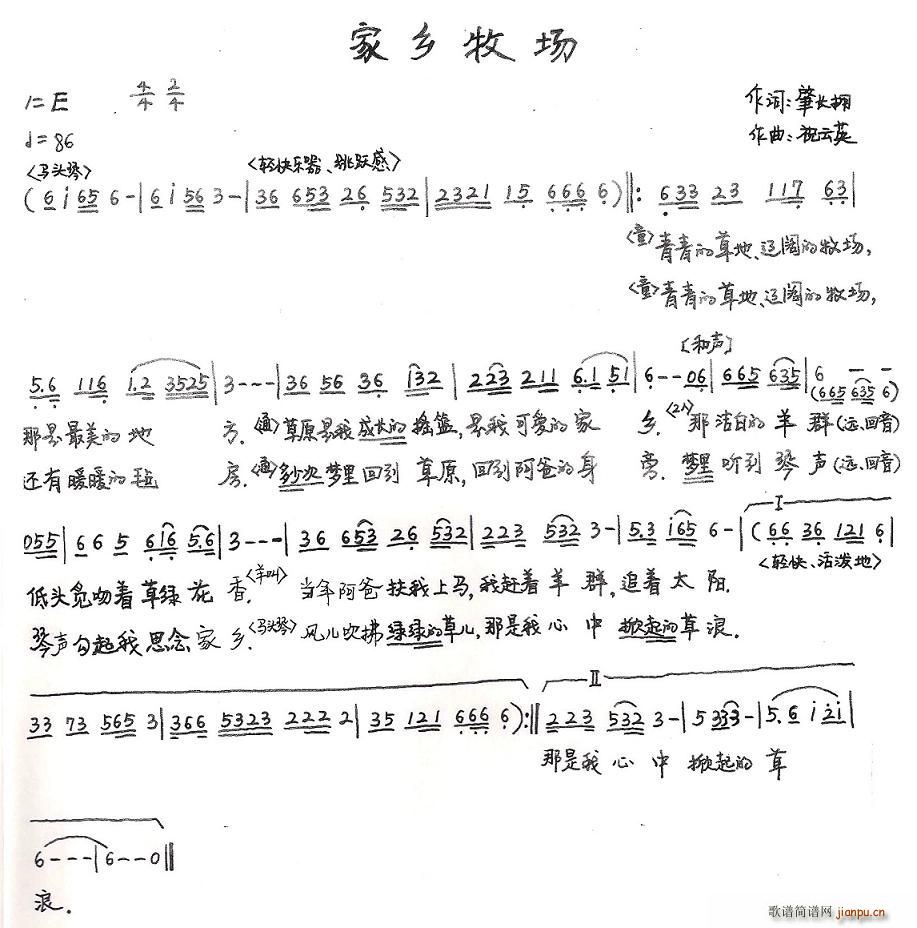 家乡牧场
1=E 4/4 2/4
作词:肇长翔
♩=86
作曲:祝云英
<马头琴> <轻快乐器、跳跃感>
(6 i 65 6 -|6 i 56 3 -|36 653 26 532|2321 15 666 6)‖: 633 23 117 63|
<童>青青的草地、辽阔的牧场,
<童>青青的草地、辽阔的牧场,
[和声]
5.6 116 1.2 3525|3---|36 56 36 i32|223 211 6.1 51|6--06|665 635|6 - -
(665 635 6)
那是最美的地 方.<通>草原是我成长的摇篮,是我可爱的家 乡.<2人>那洁白的羊群(远、回音)
还有暖暖的毡 房.<通>多少次梦里回到草原,回到阿爸的身 旁.梦里听到琴声(远、回音)
Ⅰ
055|6 6 5 616 5.6|3---|36 653 26 532|223 532 3-|5.3 i65 6-|(66 36 121 6|
<轻快、活泼地>
低头免吻着草绿花 香.<羊叫> 当年阿爸扶我上马,我赶着羊群,追着太阳.
琴声勾起我思念家 乡.<马头琴>风儿吹拂绿绿的草儿,那是我心中掀起的草浪.
Ⅱ
33 73 565 3|366 5323 222 2|35 121 666 6):‖223 532 3-|5 333-|5.6 i 2i|
那是我心中掀起的草
6---|6--0‖
浪.
歌谱简谱网 jianpu.cn